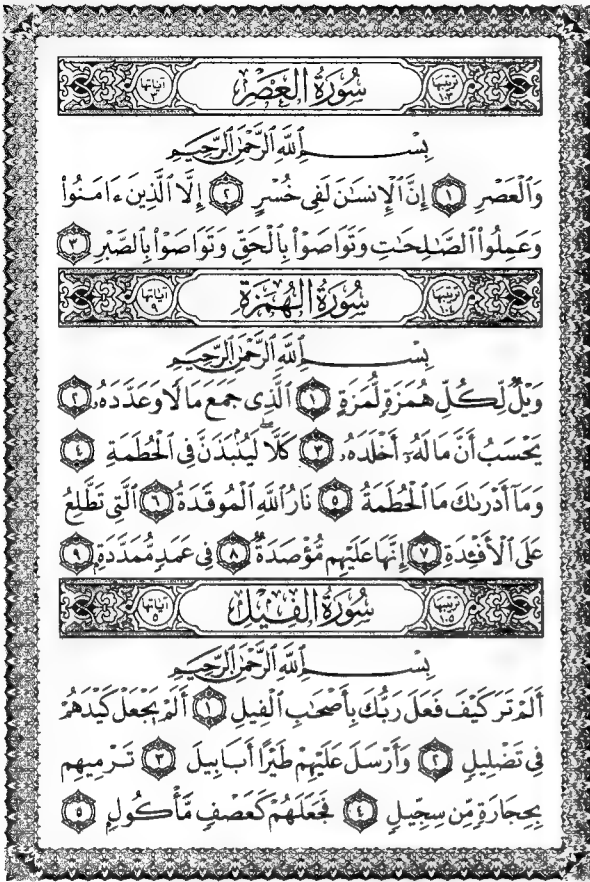 ترتيبها ١٠٣ سُورَةُ الْعَصْرِ آياتها ٣
بِسْمِ ٱللَّهِ ٱلرَّحْمَٰنِ ٱلرَّحِيمِ
وَٱلْعَصْرِ ١ إِنَّ ٱلْإِنسَٰنَ لَفِى خُسْرٍ ٢ إِلَّا ٱلَّذِينَ ءَامَنُوا۟
وَعَمِلُوا۟ ٱلصَّٰلِحَٰتِ وَتَوَاصَوْا۟ بِٱلْحَقِّ وَتَوَاصَوْا۟ بِٱلصَّبْرِ ٣
ترتيبها ١٠٤ سُورَةُ الْهُمَزَةِ آياتها ٩
بِسْمِ ٱللَّهِ ٱلرَّحْمَٰنِ ٱلرَّحِيمِ
وَيْلٌ لِّكُلِّ هُمَزَةٍ لُّمَزَةٍ ١ ٱلَّذِى جَمَعَ مَالًا وَعَدَّدَهُۥ ٢
يَحْسَبُ أَنَّ مَالَهُۥٓ أَخْلَدَهُۥ ٣ كَلَّا ۖ لَيُنۢبَذَنَّ فِى ٱلْحُطَمَةِ ٤
وَمَآ أَدْرَىٰكَ مَا ٱلْحُطَمَةُ ٥ نَارُ ٱللَّهِ ٱلْمُوقَدَةُ ٦ ٱلَّتِى تَطَّلِعُ
عَلَى ٱلْأَفْـِٔدَةِ ٧ إِنَّهَا عَلَيْهِم مُّؤْصَدَةٌ ٨ فِى عَمَدٍ مُّمَدَّدَةٍۭ ٩
ترتيبها ١٠٥ سُورَةُ الْفِيلِ آياتها ٥
بِسْمِ ٱللَّهِ ٱلرَّحْمَٰنِ ٱلرَّحِيمِ
أَلَمْ تَرَ كَيْفَ فَعَلَ رَبُّكَ بِأَصْحَٰبِ ٱلْفِيلِ ١ أَلَمْ يَجْعَلْ كَيْدَهُمْ
فِى تَضْلِيلٍ ٢ وَأَرْسَلَ عَلَيْهِمْ طَيْرًا أَبَابِيلَ ٣ تَرْمِيهِم
بِحِجَارَةٍ مِّن سِجِّيلٍ ٤ فَجَعَلَهُمْ كَعَصْفٍ مَّأْكُولٍۭ ٥